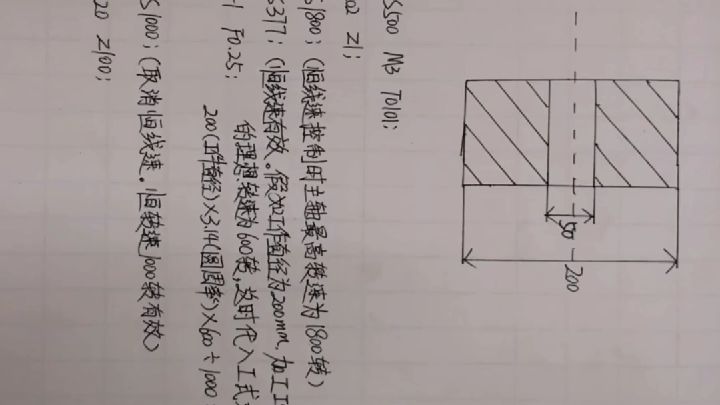 S500 M3 T0101;
202 Z1;
S1800; (恒线速控制时主轴最高转速为1800转)
S377; (恒线速有效。假如工件直径为200mm,加工
-1 F0.25;
的理想转速为600转,这时代入工式
200(工件直径)×3.14(圆周率)×600÷1000
S1000; (取消恒线速。恒转速1000转有效)
20 Z100;
50
200